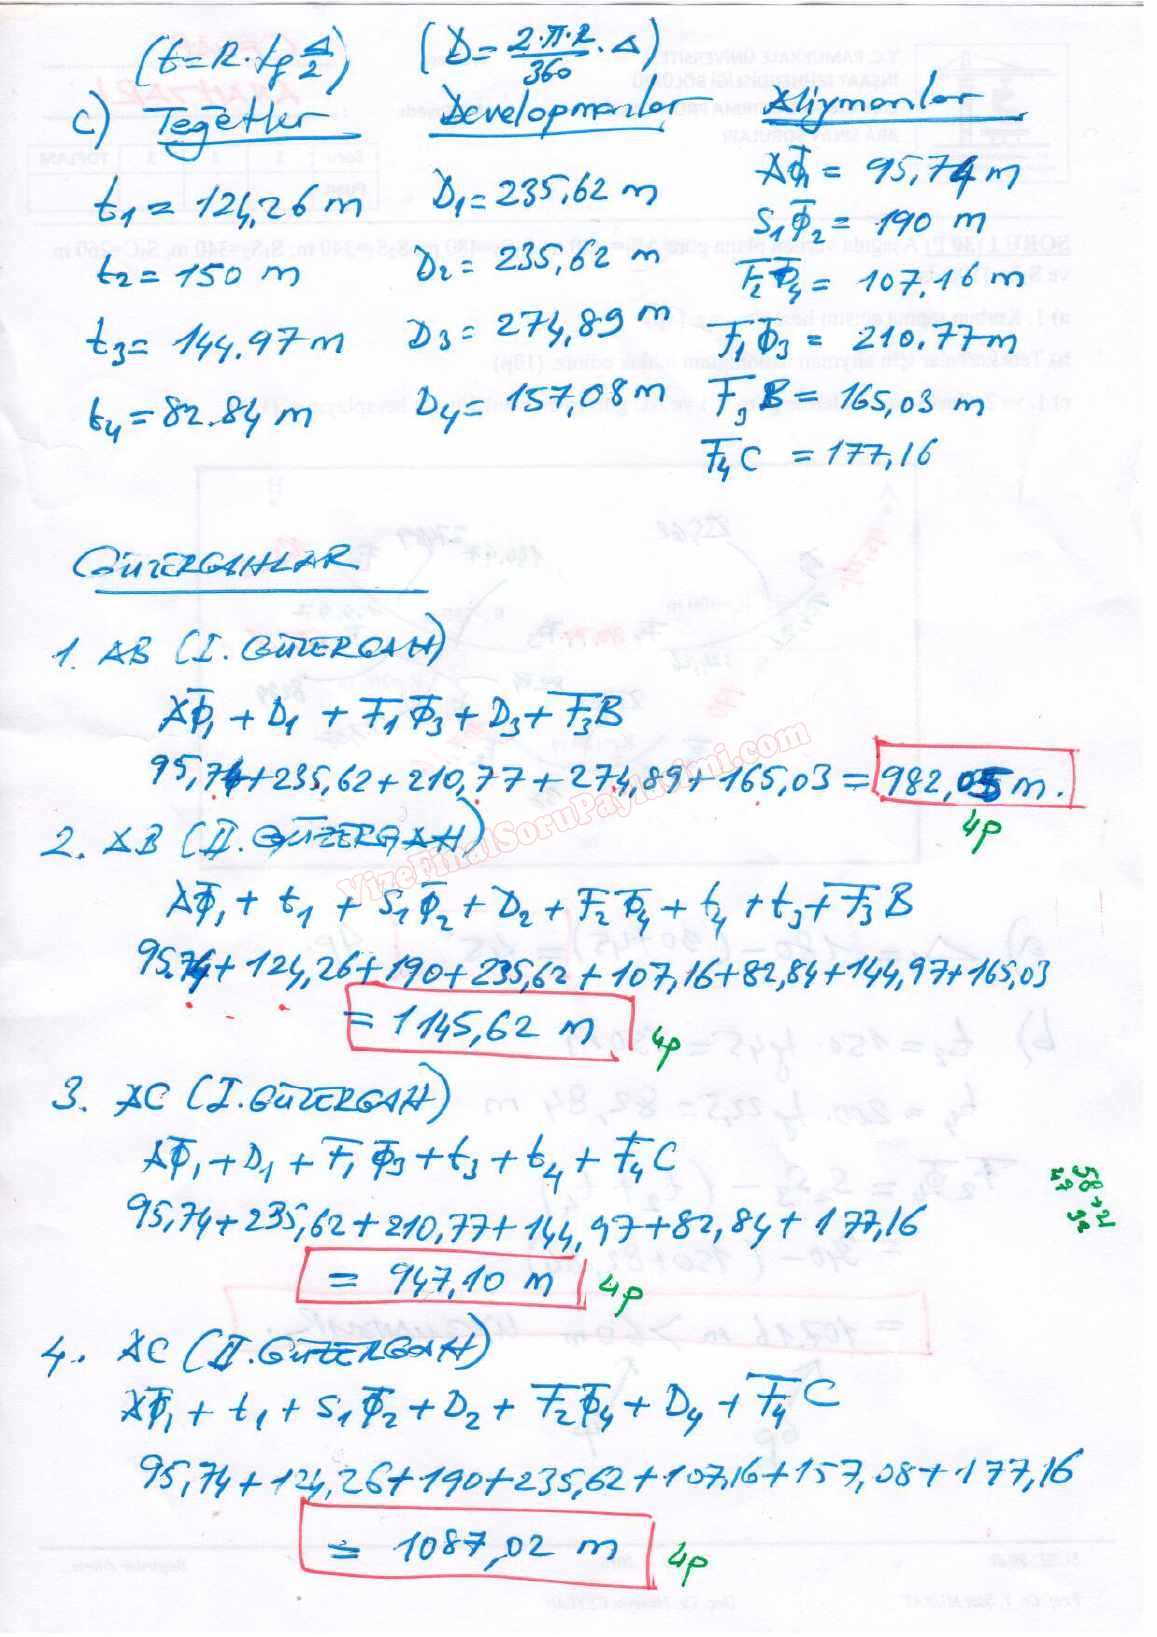 (t=R.tg Δ/2) (D=2.π.R/360 . Δ)
c) Teğetler Developmanlar Aliymanlar
t1 = 124,26 m D1 = 235,62 m AΦ1 = 95,74 m
t2 = 150 m D2 = 235,62 m S1Φ2 = 190 m
t3 = 144.97 m D3 = 274,89 m F2Φ4 = 107.16 m
t4 = 82.84 m D4 = 157,08 m F1Φ3 = 210.77 m
F3B = 165,03 m
F4C = 177,16
GÜZERGAHLAR
1. AB (I. GÜZERGAH)
AΦ1 + D1 + F1Φ3 + D3 + F3B
95,74+235,62+210,77+274,89+165,03 = 982,05 m.
4p
2. AB (II. GÜZERGAH)
AΦ1 + t1 + S1Φ2 + D2 + F2Φ4 + t4 + t3 + F3B
95.74+124,26+190+235,62+107,16+82,84+144,97+165,03
= 1145,62 m 4p
3. AC (I. GÜZERGAH)
AΦ1 + D1 + F1Φ3 + t3 + t4 + F4C
95,74+235,62+210,77+144,97+82,84+177,16
= 947,10 m 4p
4. AC (II. GÜZERGAH)
AΦ1 + t1 + S1Φ2 + D2 + F2Φ4 + D4 + F4C
95,74+124,26+190+235,62+107,16+157,08+177,16
= 1087,02 m 4p
VizeFinalSoruPaylasimi.com